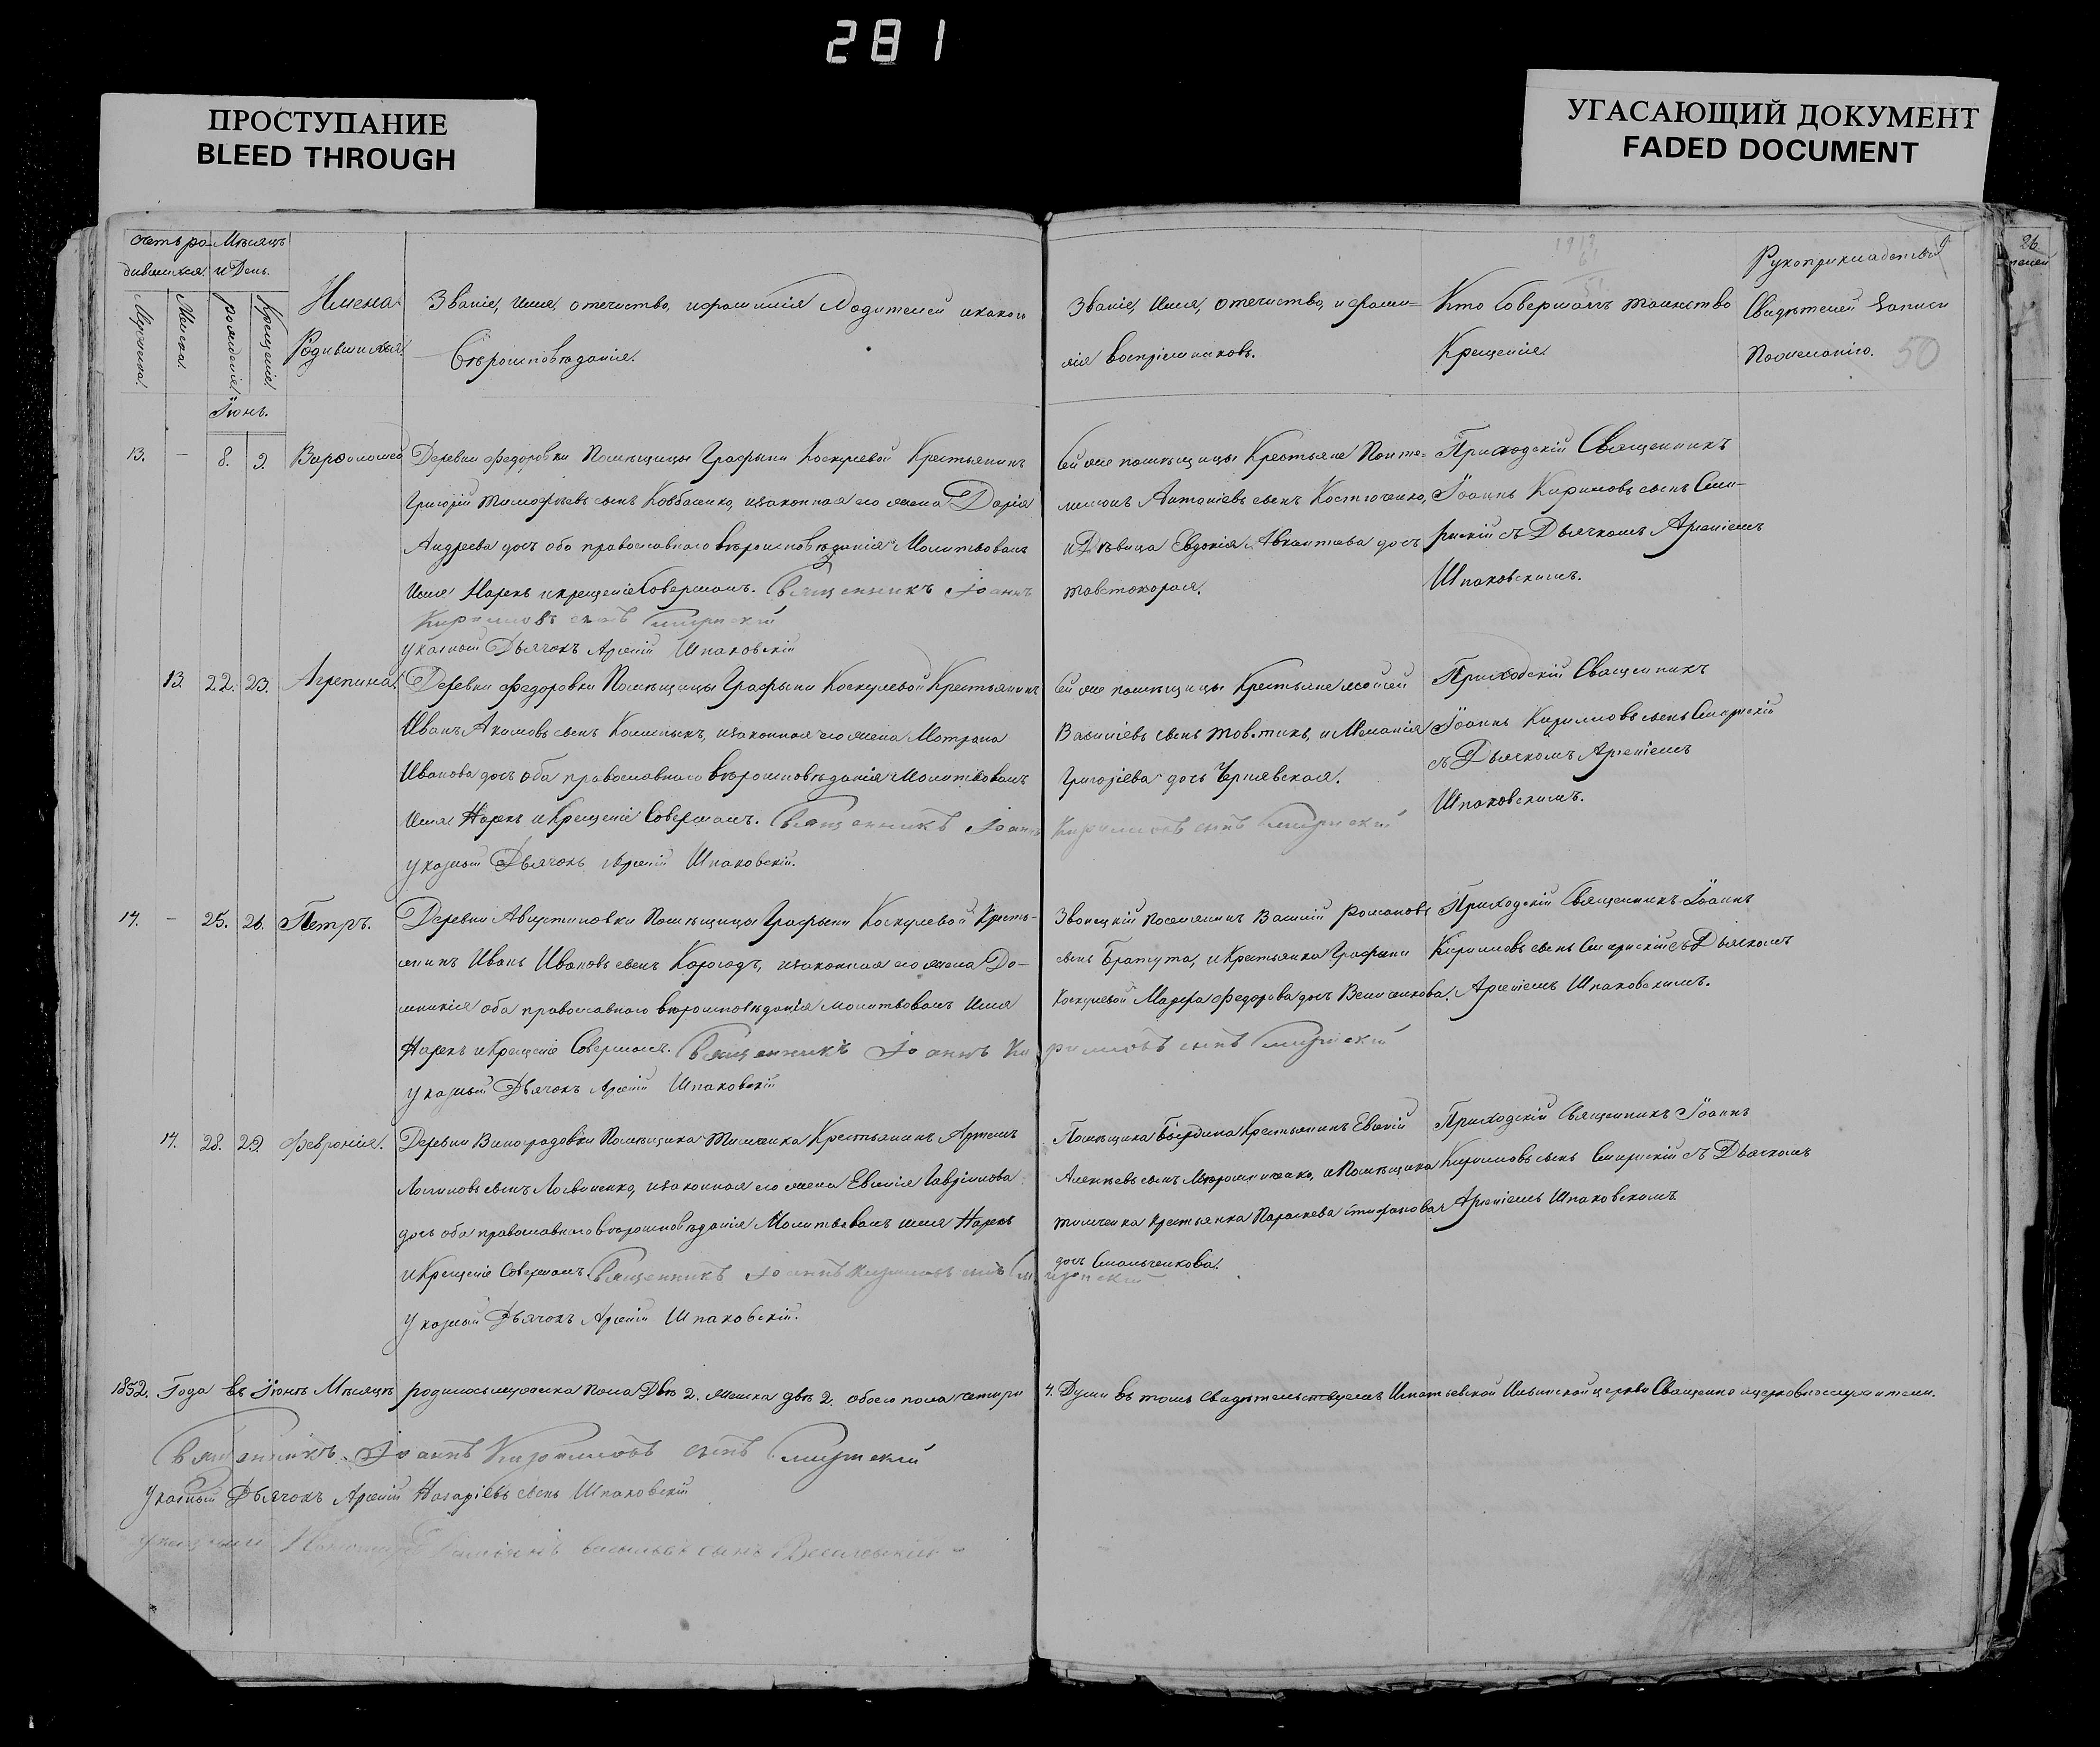 281
ПРОСТУПАНИЕ
BLEED THROUGH
УГАСАЮЩИЙ ДОКУМЕНТ
FADED DOCUMENT
26
Счетъ ро-
дившихся.
Мѣсяцъ
и День.
Мужеска.
Женска.
рожденія
Крещенія.
Имена
Родившихся.
Званіе, Имя, отечиство, и фамилія Родителей и какого
Вѣроисповѣданія.
Званіе, Имя, отечиство, и фами-
лія воспріемниковъ.
Кто Совершалъ таинство
Крещенія.
Рукоприкладствія
Свидѣтелей Записи
Пожеланію.
50
Іюнь.
13. – 8. 9. Варѳоломей
Деревни Федоровки Помѣщицы Графыни Коскулевой Крестьянинъ
Григорій Тимофѣевъ сынъ Ковбасенко, изаконная его жена Дарія
Андреева дочь оба православнаго вѣроисповѣданія Молитвовалъ
Имя Нарекъ икрещеніе Совершалъ. Священникъ Іоаннъ
Кириловъ сынъ
указный Дьячокъ Арсеній Шпаковскій
Сей же помѣщицы Крестьяне Понте-
лимонъ Антоніевъ сынъ Костюченко,
и Дѣвица Евдокія дочь
Товстокорая.
Приходскій Священникъ
Іоаннъ Кириловъ сынъ
съ Дьячкомъ Арсеніемъ
Шпаковскимъ.
13. 22. 23. Агрепина.
Деревни Федоровки Помѣщицы Графыни Коскулевой Крестьянинъ
Иванъ Акимовъ сынъ изаконная его жена Мотрона
Иванова дочь оба православнаго вѣроисповѣданія Молитвовалъ
Имя Нарекъ и Крещеніе Совершалъ. Священникъ Іоаннъ Кириловъ сынъ
указный Дьячокъ Арсеній Шпаковскій.
Сей же помѣщицы Крестьяне
Василіевъ сынъ и Меланія
Григоріева дочь Чернявская.
Приходскій Священникъ
Іоаннъ Кириловъ сынъ
съ Дьячкомъ Арсеніемъ
Шпаковскимъ.
14. – 25. 26. Петръ.
Деревни Августиновки Помѣщицы Графыни Коскулевой Кресть-
янинъ Иванъ Ивановъ сынъ Корогодъ, изаконная его жена До-
миникія оба православнаго вѣроисповѣданія молитвовалъ Имя
Нарекъ и Крещеніе Совершалъ. Священникъ Іоаннъ Кириловъ сынъ
указный Дьячокъ Арсеній Шпаковскій
Звонецкій поселянинъ Василій Романовъ
сынъ Братута, и Крестьянка Графыни
Коскулевой Марфа Федорова дочь Величкова.
Приходскій Священникъ Іоаннъ
Кириловъ сынъ съ Дьячкомъ
Арсеніемъ Шпаковскимъ.
14. 28. 29. Февронія.
Деревни Виноградовки Помѣщика Тимченка Крестьянинъ Артемъ
Логиновъ сынъ Логвиненко, изаконная его жена Евгенія Гавріилова
дочь оба православнаго вѣроисповѣданія Молитвовалъ имя Нарекъ
и Крещеніе Совершалъ Священникъ Іоаннъ Кириловъ сынъ
Указный Дьячокъ Арсеній Шпаковскій.
Помѣщика Крестьянинъ Евгеній
Алексѣевъ сынъ Мирошниченко, и Помѣщика
Тимченка Крестьянка Параскева Стифанова
дочь Смальченкова.
Приходскій Священникъ Іоаннъ
Кириловъ сынъ съ Дьячкомъ
Арсеніемъ Шпаковскимъ
1852. Года въ Іюнѣ Мѣсяцѣ родилось мужеска пола Двѣ 2. женска двѣ 2. обоего пола четыри 4. Души въ томъ Свидѣтельствуемъ Игнатьевской Ильинской церкви Священно ицерковнослужители.
Священникъ Іоаннъ Кириловъ сынъ
Указный Дьячокъ Арсеній Назаріевъ сынъ Шпаковскій